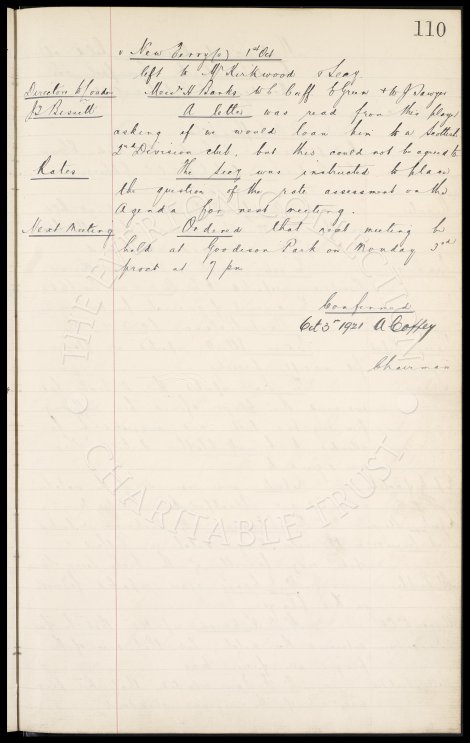 110
v New Ferry (a) 1st Oct
left to Mr Kirkwood & Secy
Directors to London Messrs H Banks W C Cuff E Green & W J Sawyer
A letter was read from this player
asking if we would loan him to a Scottish
2nd Division club, but this could not be agreed to
Rates The Secy was instructed to place
the question of the rate assessment on the
Agenda for next meeting.
Next Meeting Ordered that next meeting be
held at Goodison Park on Monday 3rd
proxt at 7 pm
Confirmed
Oct 3rd 1921 A Coffey
Chairman
THE EVERTON COLLECTION
CHARITABLE TRUST